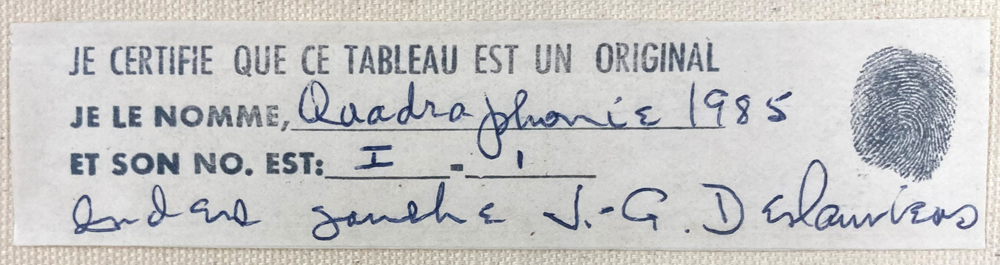 JE CERTIFIE QUE CE TABLEAU EST UN ORIGINAL
JE LE NOMME, Quadraphonie 1985
ET SON NO. EST: I - 1
gauche J.-G. Deslauriers